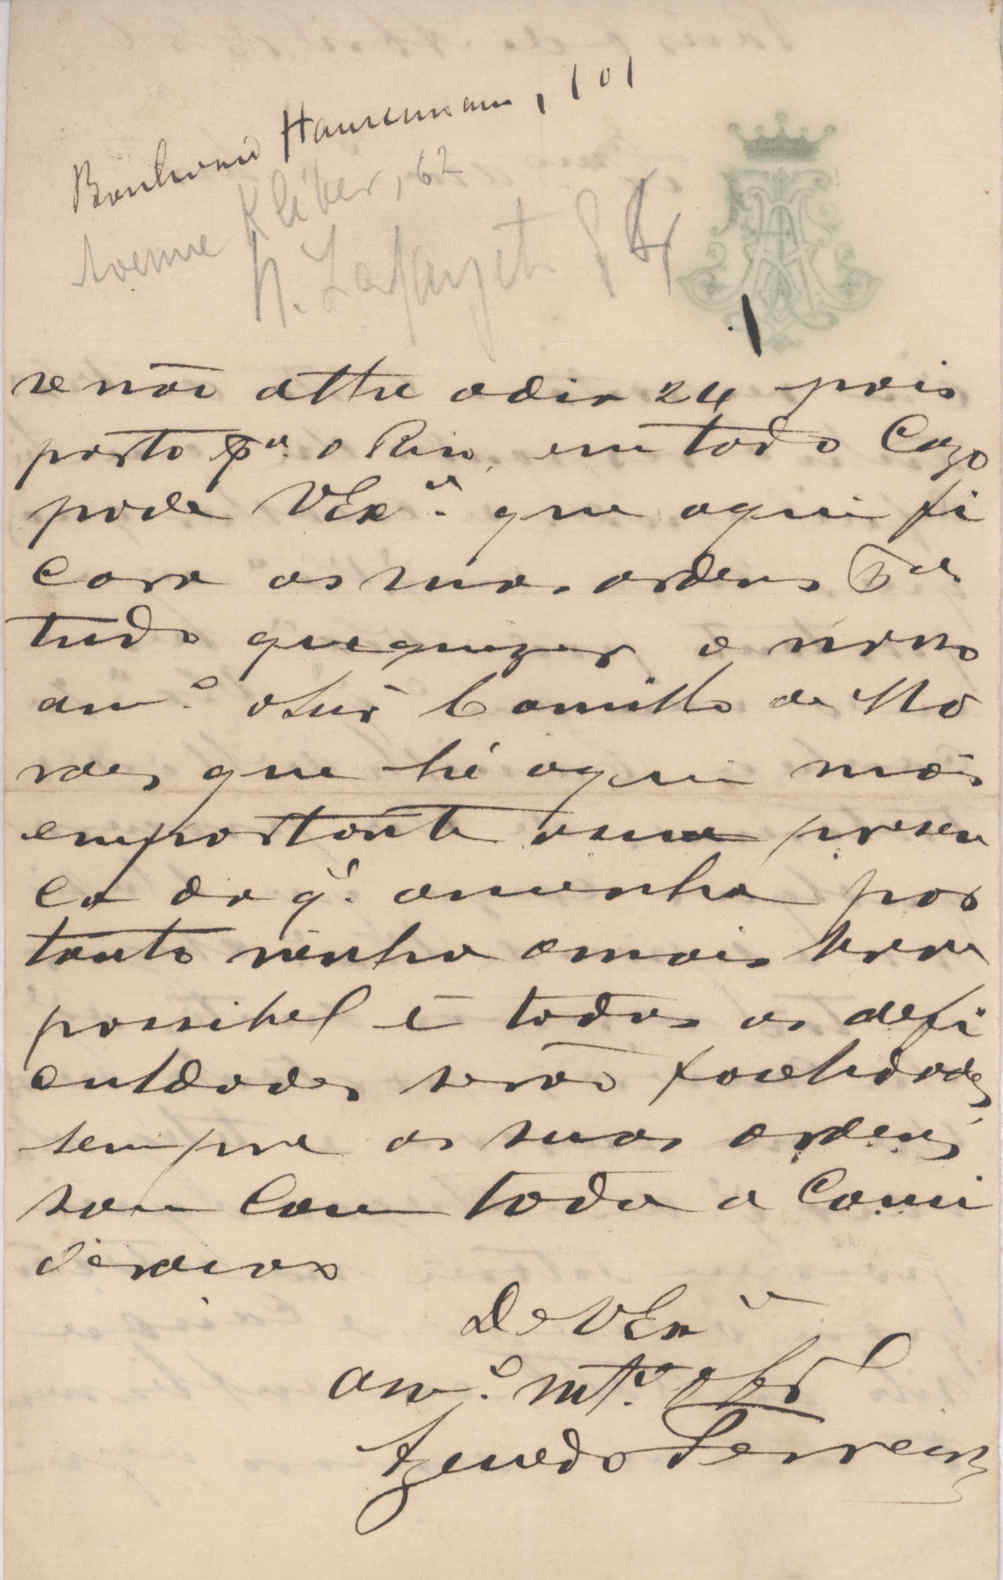 Boulevard Haussmann, 101
Avenue Kléber, 62
H. Lafayete
se não athe odia 24 pois
parto pª. o Rio, em todo Cazo
pode VExª. que aqui fi
cara as suas ordens pª
tudo quequizer o nosso
amº. oSnr Camillo de Mo
raes que hé aqui mais
emportante asua presen
ca do q'. aminha por
tanto venha omais breve
possibel e todas as defi
culdades serão facelidades
sempre as suas ordens
sou Com toda a Consi
deracao
De VExª
amº. mtº. obrº
Azevedo Ferreira